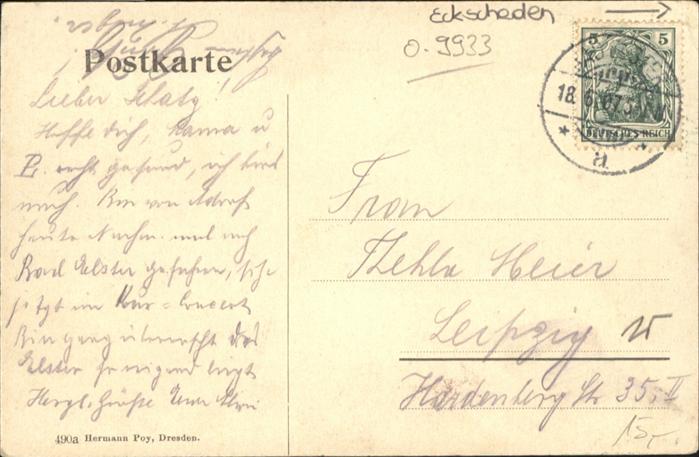 Eckschaden
o. 9933
Postkarte
5 5
DEUTSCHES REICH
18. 6. 07.
a
Lieber Schatz!
Hoffe dich, Mama u
recht gesund, ich bin's
auch. Bin von Adorf
heute Nachm. mal nach
Bad Elster gefahren,
jetzt im Kur-Concert
Bin ganz überrascht das
Elster so reizend liegt
Herzl. Grüße
Frau
Thekla Meier
Leipzig
Hardenberg Str. 35, II
15,-
490a Hermann Poy, Dresden.